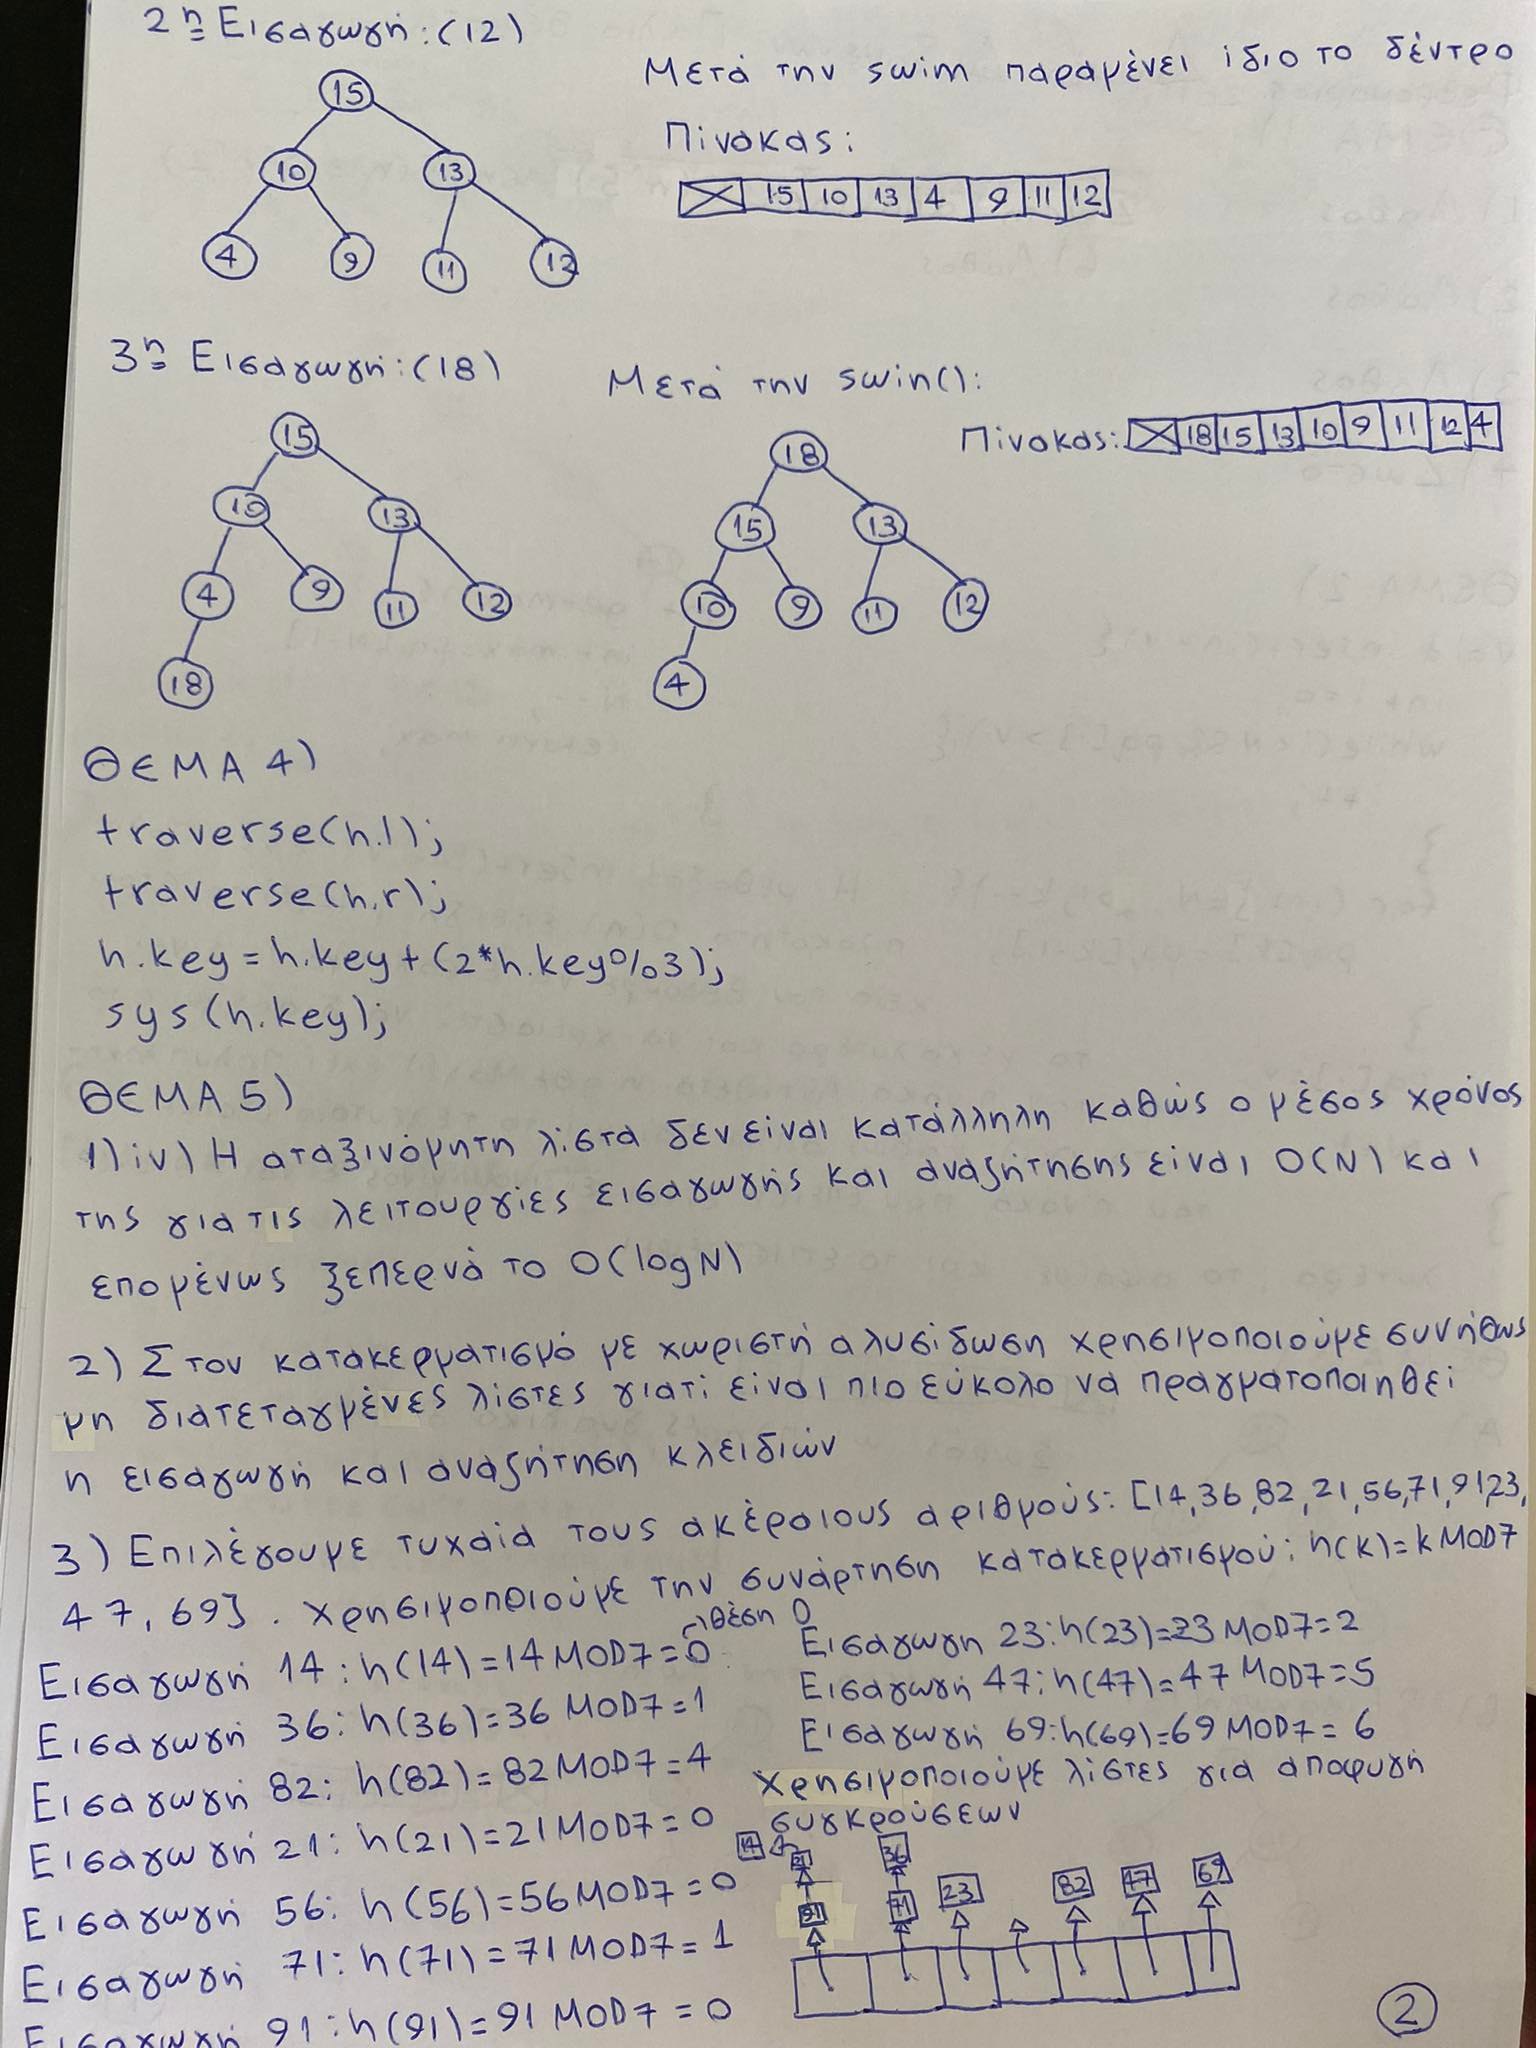 2η Εισαγωγή: (12)
Μετά την swim παραμένει ίδιο το δέντρο
15
Πίνακας:
10 13
15 10 13 4 9 11 12
4 9 11 12
3η Εισαγωγή: (18)
Μετά την swin():
Πίνακας: 18 15 13 10 9 11 12 4
15
18
10 13
15 13
4 9 11 12
10 9 11 12
18
4
ΘΕΜΑ 4)
traverse(h.l);
traverse(h.r);
h.key = h.key + (2*h.key%3);
sys(h.key);
ΘΕΜΑ 5)
1) iv) Η αταξινόμητη λίστα δεν είναι κατάλληλη καθώς ο μέσος χρόνος
της για τις λειτουργίες εισαγωγής και αναζήτησης είναι O(N) και
επομένως ξεπερνά το O(logN)
2) Στον κατακερματισμό με χωριστή αλυσίδωση χρησιμοποιούμε συνήθως
μη διατεταγμένες λίστες γιατί είναι πιο εύκολο να πραγματοποιηθεί
η εισαγωγή και αναζήτηση κλειδιών
3) Επιλέγουμε τυχαία τους ακέραιους αριθμούς: [14,36,82,21,56,71,91,23,
47,69]. Χρησιμοποιούμε την συνάρτηση κατακερματισμού: h(k)=k MOD7
θέση 0
Εισαγωγή 14: h(14)=14 MOD7=0
Εισαγωγή 36: h(36)=36 MOD7=1
Εισαγωγή 82: h(82)=82 MOD7=4
Εισαγωγή 21: h(21)=21 MOD7=0
Εισαγωγή 56: h(56)=56 MOD7=0
Εισαγωγή 71: h(71)=71 MOD7=1
Εισαγωγή 91: h(91)=91 MOD7=0
Εισαγωγη 23: h(23)=23 MOD7=2
Εισαγωγή 47: h(47)=47 MOD7=5
Εισαγωγή 69: h(69)=69 MOD7=6
Χρησιμοποιούμε λίστες για αποφυγή
συγκρούσεων
14 21 36
91 71 23 82 47 69
2